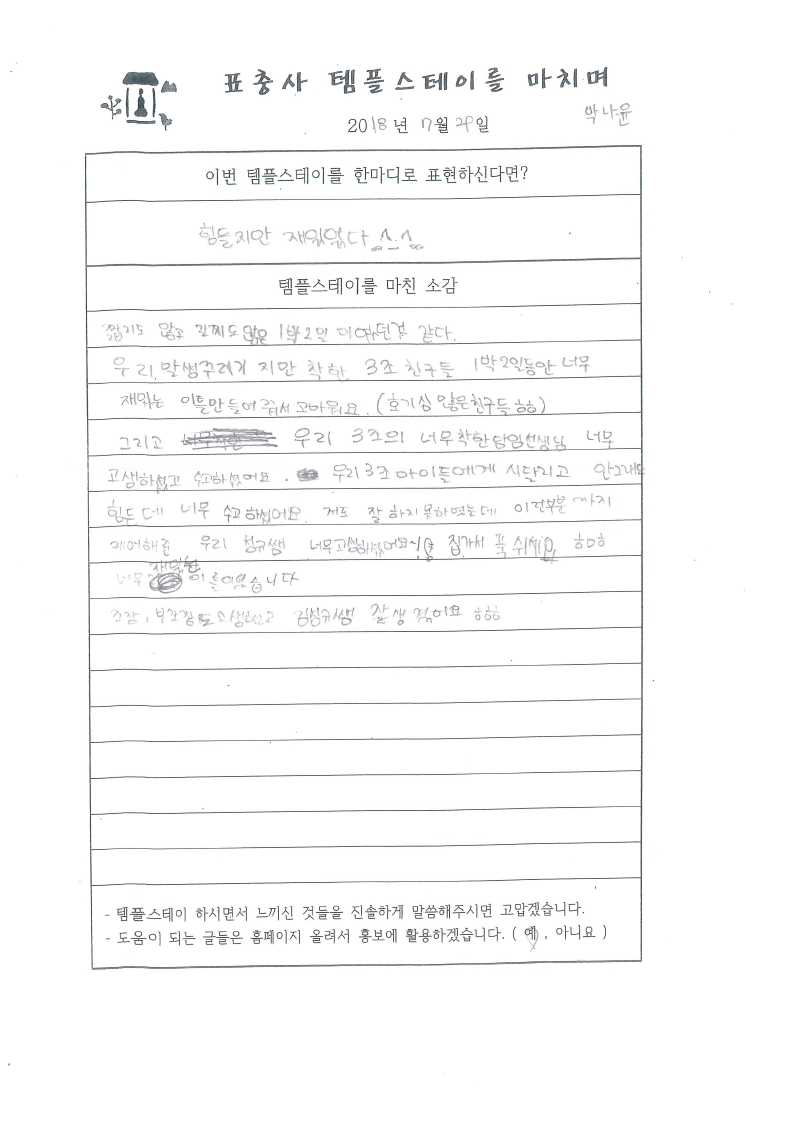 표충사 템플스테이를 마치며
2018년 7월 29일
박나윤
이번 템플스테이를 한마디로 표현하신다면?
힘들지만 재밌었다
템플스테이를 마친 소감
짧지도 않고 길지도 않은 1박2일 이였던것 같다.
우리 말썽꾸러기 지만 착한 3조 친구들 1박2일동안 너무
재밌는 이틀만들어 줘서 고마워요. (호기심 많은친구들 ㅎㅎ)
그리고 우리 3조의 너무착한담임선생님 너무
고생하셨고 수고하셨어요. 우리3조아이들에게 시달리고 안그래도
힘든데 너무 수고하셨어요 저도 잘 하지못하였는데 이런부분까지
케어해준 우리 쌤 너무고생하셨어요~! 집가서 푹 쉬세요 ㅎㅁㅎ
너무 재밌는 이틀이었습니다
조장, 부조장도 고생했고 쌤 잘생겼어요 ㅎㅎㅎ
- 템플스테이 하시면서 느끼신 것들을 진솔하게 말씀해주시면 고맙겠습니다.
- 도움이 되는 글들은 홈페이지 올려서 홍보에 활용하겠습니다. ( 예, 아니요 )